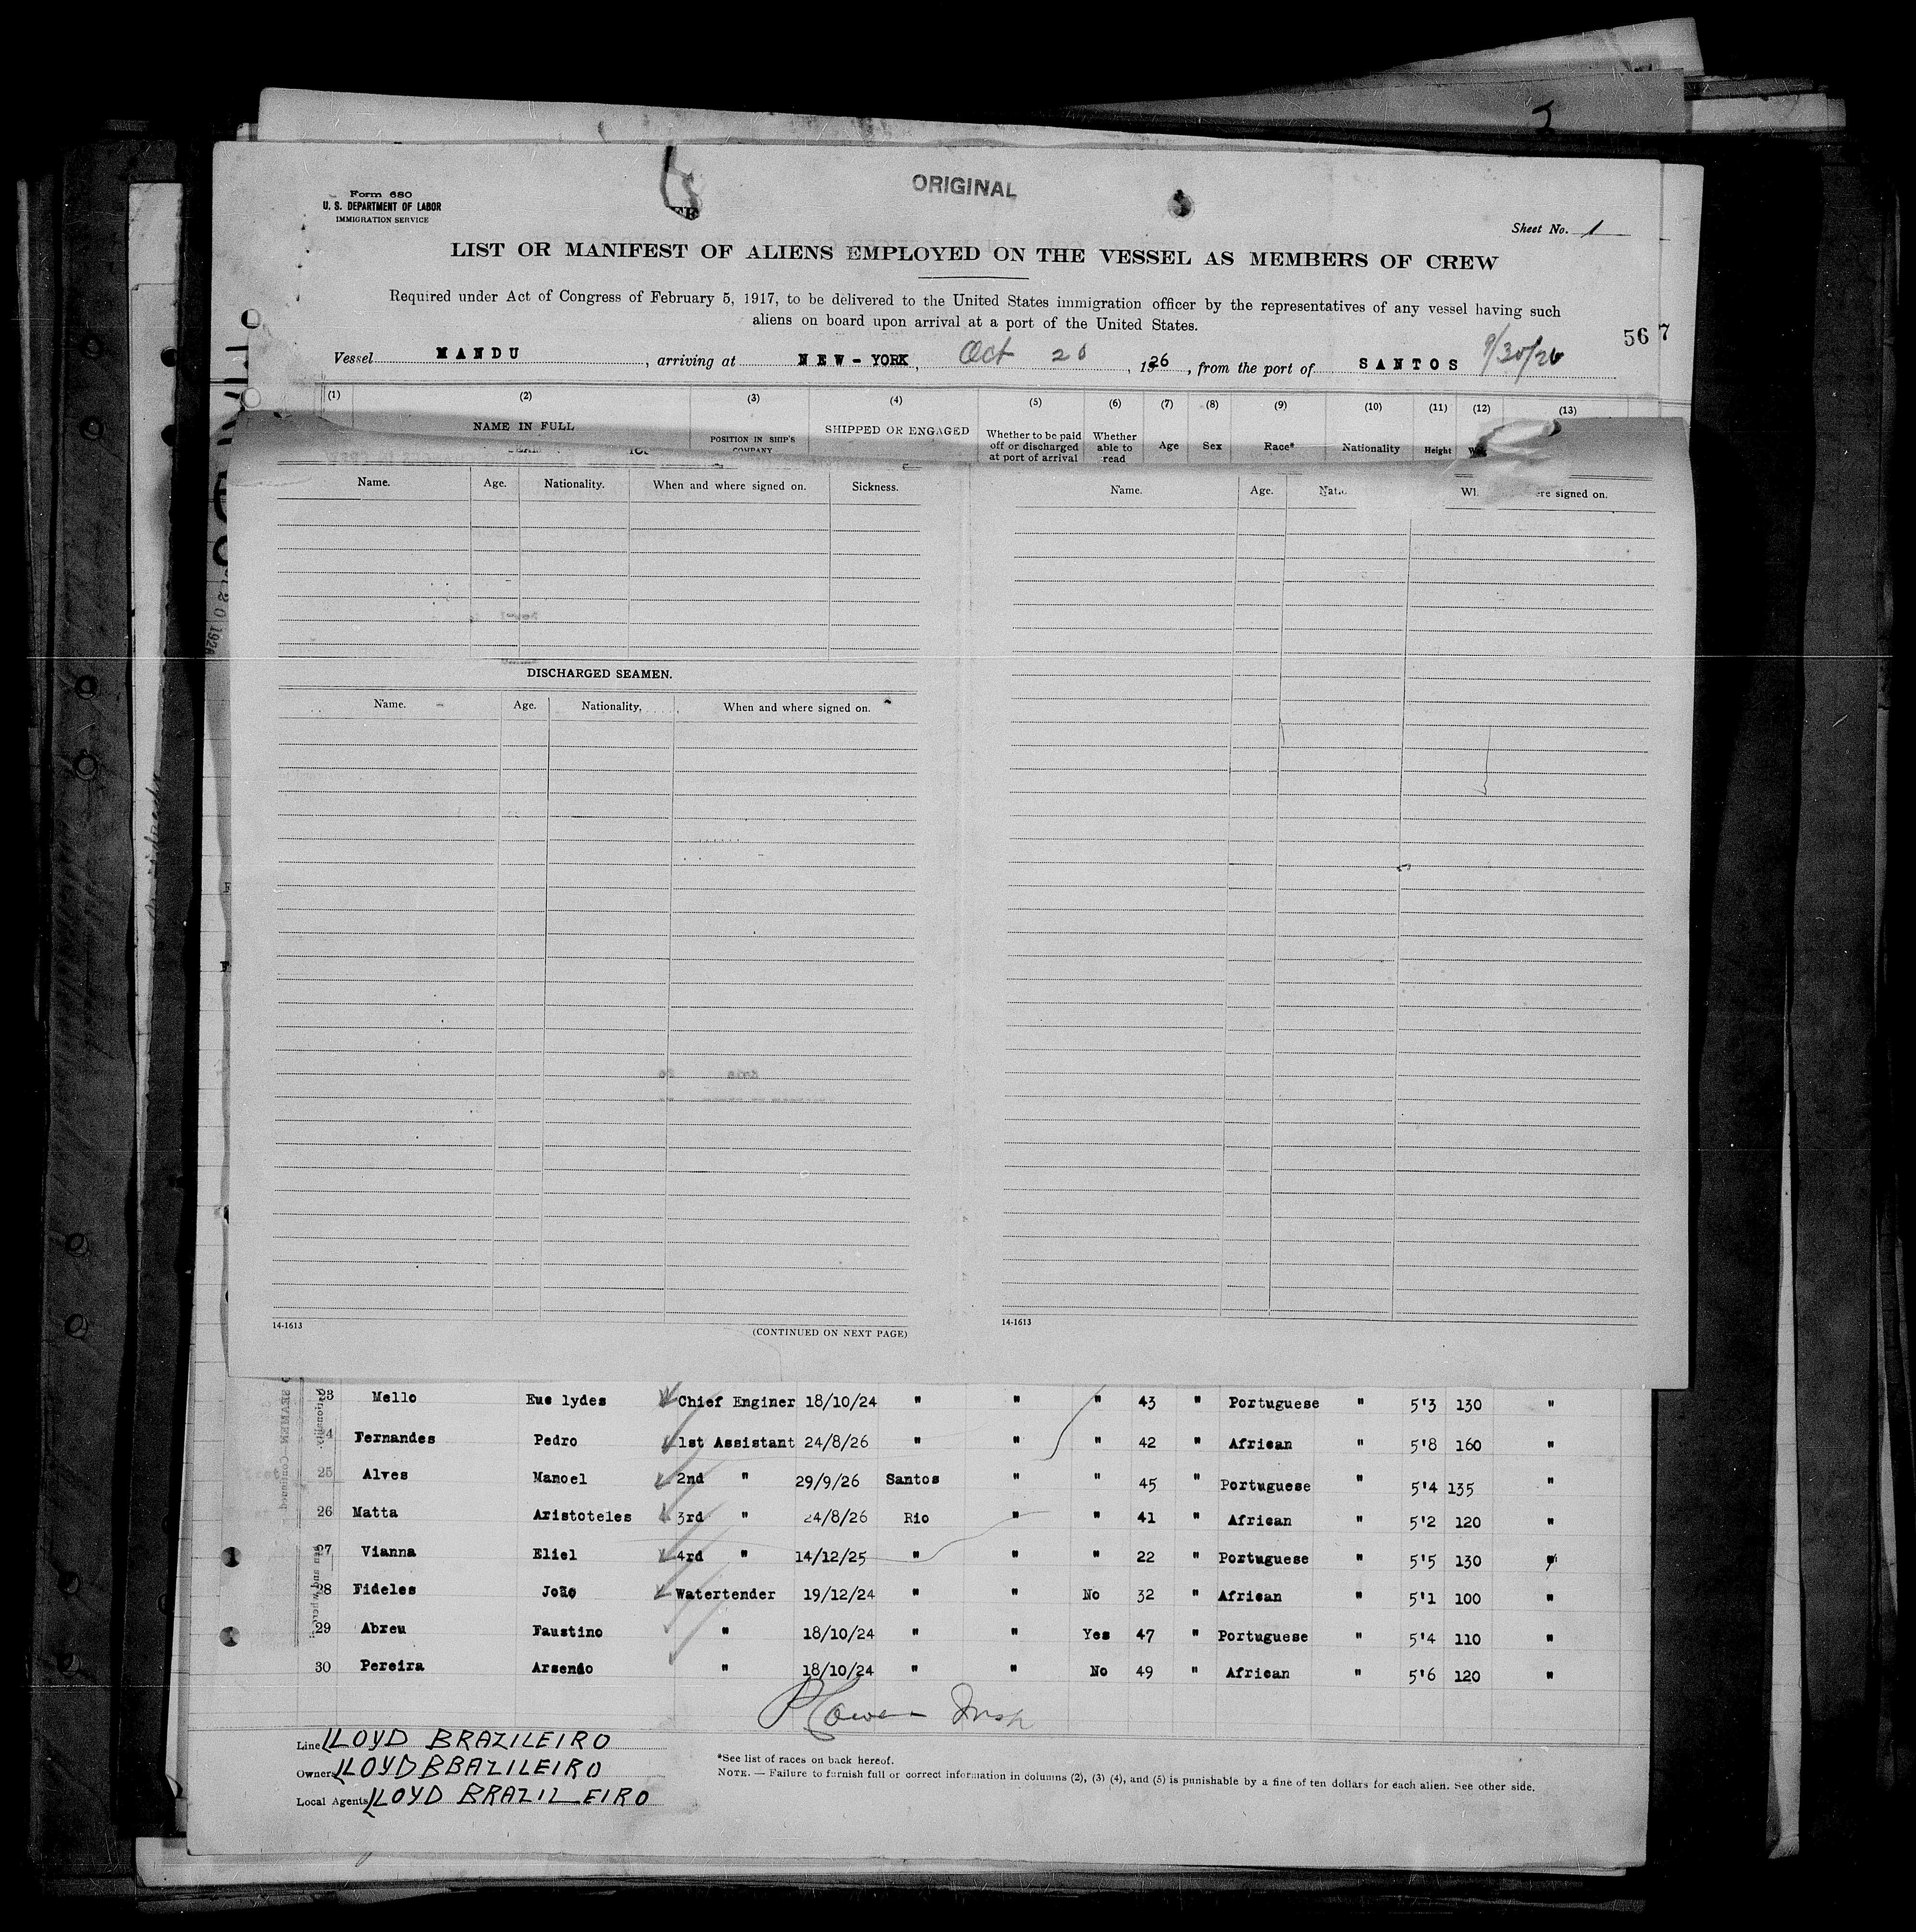 Form 680
U. S. DEPARTMENT OF LABOR
IMMIGRATION SERVICE
ORIGINAL
Sheet No. 1
LIST OR MANIFEST OF ALIENS EMPLOYED ON THE VESSEL AS MEMBERS OF CREW
Required under Act of Congress of February 5, 1917, to be delivered to the United States immigration officer by the representatives of any vessel having such
aliens on board upon arrival at a port of the United States.
56 7
Vessel MANDU, arriving at NEW-YORK, Oct 20, 1926, from the port of SANTOS 9/30/26
(1) (2) (3) (4) (5) (6) (7) (8) (9) (10) (11) (12) (13)
NAME IN FULL POSITION IN SHIP'S COMPANY SHIPPED OR ENGAGED Whether to be paid off or discharged at port of arrival Whether able to read Age Sex Race* Nationality Height
Name. Age. Nationality. When and where signed on. Sickness. Name. Age. signed on.
DISCHARGED SEAMEN.
Name. Age. Nationality. When and where signed on.
14-1613 (CONTINUED ON NEXT PAGE) 14-1613
23 Mello Euclydes Chief Enginer 18/10/24 " " " 43 " Portuguese " 5'3 130 "
4 Fernandes Pedro 1st Assistant 24/8/26 " " " 42 " African " 5'8 160 "
25 Alves Manoel 2nd " 29/9/26 Santos " " 45 " Portuguese " 5'4 135 "
26 Matta Aristoteles 3rd " 24/8/26 Rio " " 41 " African " 5'2 120 "
27 Vianna Eliel 4rd " 14/12/25 " " " 22 " Portuguese " 5'5 130 "
28 Fideles João Watertender 19/12/24 " " No 32 " African " 5'1 100 "
29 Abreu Faustino " 18/10/24 " " Yes 47 " Portuguese " 5'4 110 "
30 Pereira Arsenio " 18/10/24 " " No 49 " African " 5'6 120 "
Line LLOYD BRAZILEIRO
Owners LLOYD BRAZILEIRO
Local Agents LLOYD BRAZILEIRO
*See list of races on back hereof.
NOTE. — Failure to furnish full or correct information in columns (2), (3) (4), and (5) is punishable by a fine of ten dollars for each alien. See other side.